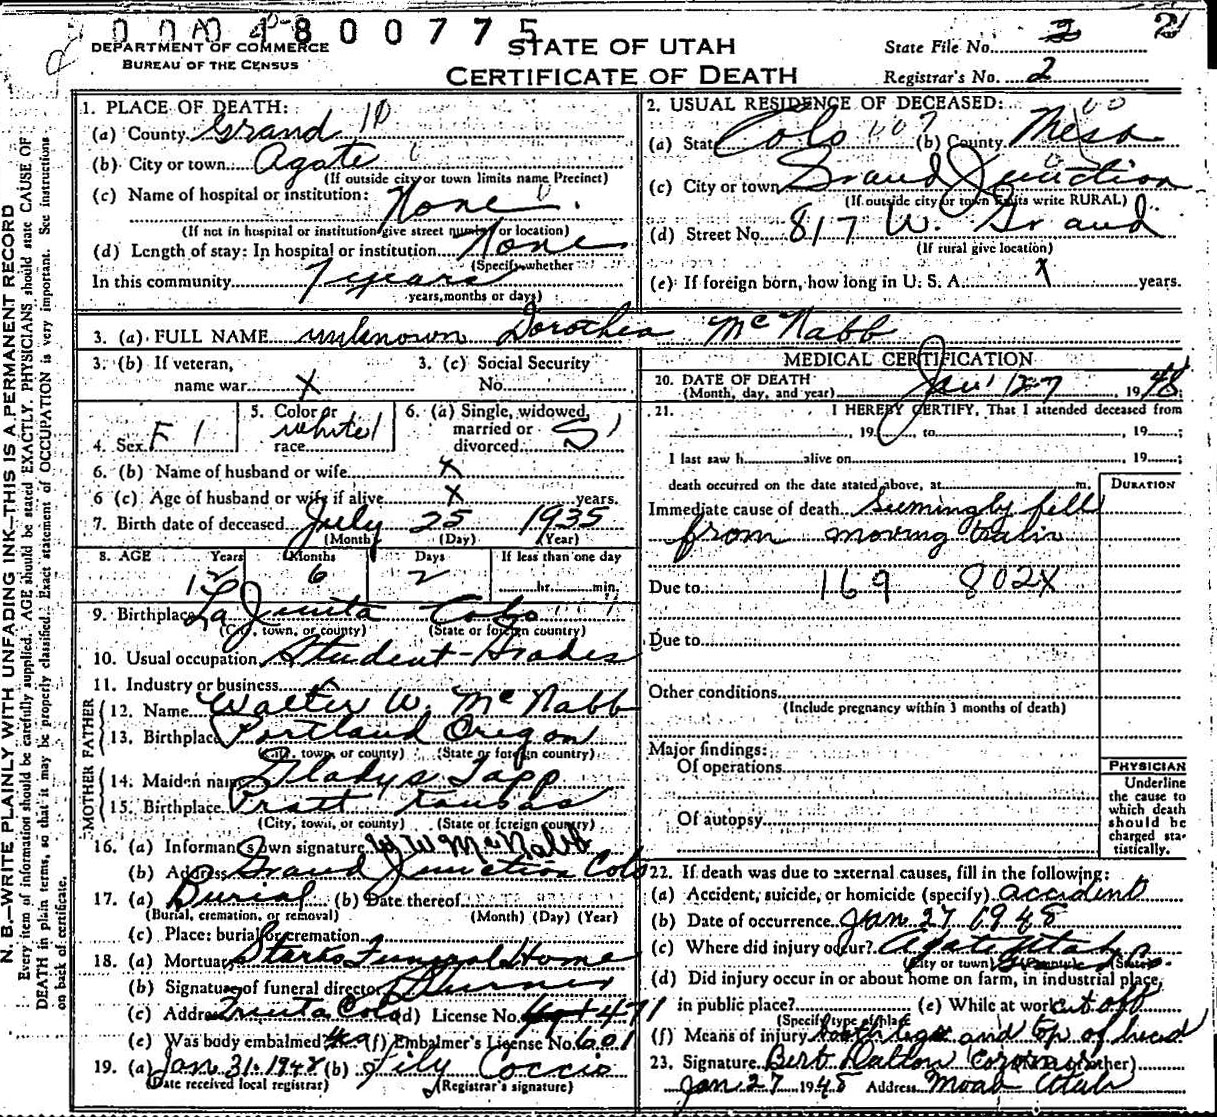 0 0 0 4 8 0 0 7 7 5
DEPARTMENT OF COMMERCE
BUREAU OF THE CENSUS
STATE OF UTAH
CERTIFICATE OF DEATH
State File No. 2
Registrar's No. 2
2
N. B.—WRITE PLAINLY WITH UNFADING INK—THIS IS A PERMANENT RECORD
Every item of information should be carefully supplied. AGE should be stated EXACTLY. PHYSICIANS should state CAUSE OF
DEATH in plain terms, so that it may be properly classified. Exact statement of OCCUPATION is very important. See instructions
on back of certificate.
1. PLACE OF DEATH:
(a) County Grand 10
(b) City or town Agate
(If outside city or town limits name Precinct)
(c) Name of hospital or institution: None
(If not in hospital or institution give street number or location)
(d) Length of stay: In hospital or institution None
(Specify whether
In this community 7 years
years, months or days)
2. USUAL RESIDENCE OF DECEASED:
(a) State Colo (b) County Mesa
(c) City or town Grand Junction
(If outside city or town limits write RURAL)
(d) Street No. 817 W. Grand
(If rural give location)
(e) If foreign born, how long in U. S. A. x years.
3. (a) FULL NAME unknown Dorothea McNabb
3. (b) If veteran,
name war X
3. (c) Social Security
No.
4. Sex F 1
5. Color or
race white 1
6. (a) Single, widowed,
married or
divorced S 1
6. (b) Name of husband or wife x
6 (c) Age of husband or wife if alive x years.
7. Birth date of deceased July 25 1935
(Month) (Day) (Year)
8. AGE Years Months Days If less than one day
12 6 2 hr. min.
9. Birthplace La Junta Colo
(City, town, or county) (State or foreign country)
10. Usual occupation Student-Grades
11. Industry or business
FATHER
12. Name Walter W. McNabb
13. Birthplace Portland Oregon
(City, town, or county) (State or foreign country)
MOTHER
14. Maiden name Gladys Tapp
15. Birthplace Pratt Kansas
(City, town, or county) (State or foreign country)
16. (a) Informant's own signature W W McNabb
(b) Address Grand Junction Colo
17. (a) Burial (b) Date thereof
(Burial, cremation, or removal) (Month) (Day) (Year)
(c) Place: burial or cremation
18. (a) Mortuary Starks Funeral Home
(b) Signature of funeral director
(c) Address Fruita Colo (d) License No. 471
(e) Was body embalmed (f) Embalmer's License No. 601
19. (a) Jan. 31. 1948 (b)
(Date received local registrar) (Registrar's signature)
MEDICAL CERTIFICATION
20. DATE OF DEATH
(Month, day, and year) Jan 27 1948;
21. I HEREBY CERTIFY, That I attended deceased from
, 19 , to , 19 ;
I last saw h alive on 19 ;
death occurred on the date stated above, at m.
DURATION
Immediate cause of death Seemingly fell
from moving train
Due to 169 802X
Due to
Other conditions
(Include pregnancy within 3 months of death)
Major findings:
Of operations
Of autopsy
PHYSICIAN
Underline
the cause to
which death
should be
charged sta-
tistically.
22. If death was due to external causes, fill in the following:
(a) Accident, suicide, or homicide (specify) accident
(b) Date of occurrence Jan 27 1948
(c) Where did injury occur? Agate Utah
(City or town) (County) (State)
(d) Did injury occur in or about home on farm, in industrial place,
in public place? (e) While at work cut off
(Specify type of place)
(f) Means of injury both legs and top of head
23. Signature Bert Dalton Coroner (or other)
Jan 27 1948 Address Moab Utah